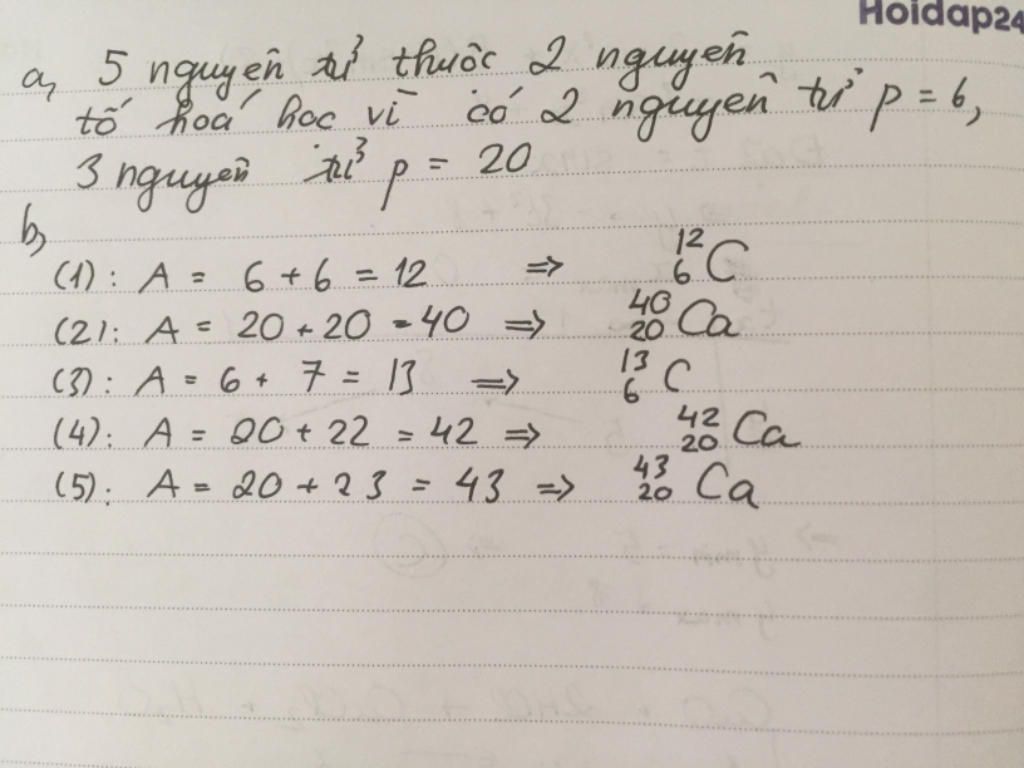 Hoidap24
a, 5 nguyên tử thuộc 2 nguyên
tố hoá học vì có 2 nguyên tử p = 6,
3 nguyên tử p = 20
b,
(1): A = 6 + 6 = 12 => ¹²₆C
(2): A = 20 + 20 = 40 => ⁴⁰₂₀Ca
(3): A = 6 + 7 = 13 => ¹³₆C
(4): A = 20 + 22 = 42 => ⁴²₂₀Ca
(5): A = 20 + 23 = 43 => ⁴³₂₀Ca